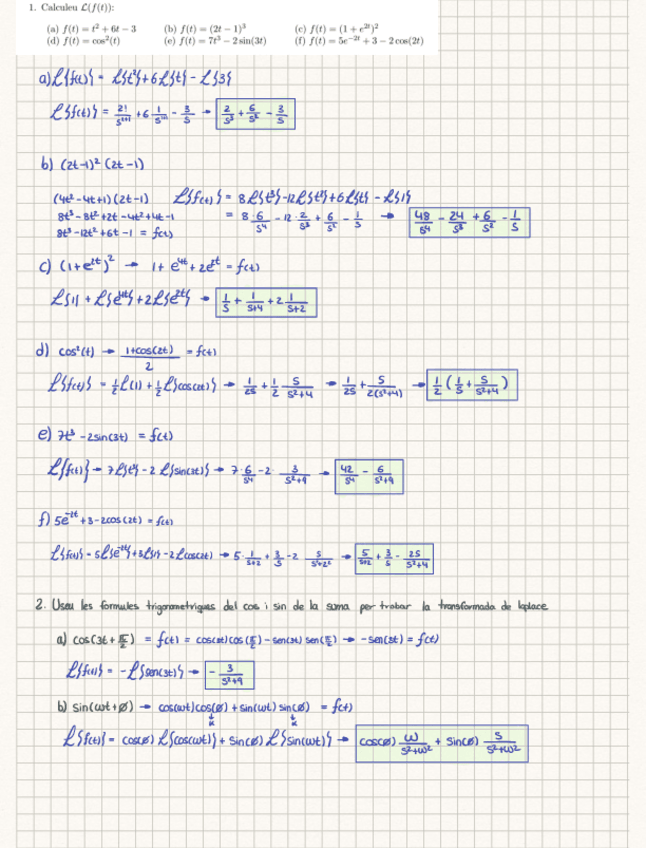 1. Calculeu ℒ(f(t)):
(a) f(t) = t² + 6t − 3 (b) f(t) = (2t − 1)³ (c) f(t) = (1 + e²ᵗ)²
(d) f(t) = cos²(t) (e) f(t) = 7t³ − 2 sin(3t) (f) f(t) = 5e⁻²ᵗ + 3 − 2 cos(2t)
a) ℒ{f(t)} = ℒ{t²} + 6ℒ{t} − ℒ{3}
ℒ{f(t)} = 2!/s²⁺¹ + 6 1/s¹⁺¹ − 3/s → 2/s³ + 6/s² − 3/s
b) (2t−1)² (2t−1)
(4t² −4t+1)(2t−1) ℒ{f(t)} = 8ℒ{t³} −12ℒ{t²} + 6ℒ{t} − ℒ{1}
8t³ − 8t² + 2t − 4t² + 4t − 1 = 8·6/s⁴ − 12·2/s³ + 6/s² − 1/s → 48/s⁴ − 24/s³ + 6/s² − 1/s
8t³ − 12t² + 6t − 1 = f(t)
c) (1+e²ᵗ)² → 1 + e⁴ᵗ + 2e²ᵗ = f(t)
ℒ{1} + ℒ{e⁴ᵗ} + 2ℒ{e²ᵗ} → 1/s + 1/(s+4) + 2 1/(s+2)
d) cos²(t) → (1+cos(2t))/2 = f(t)
ℒ{f(t)} = ½ℒ(1) + ½ℒ{cos(2t)} → 1/2s + 1/2 s/(s²+4) → 1/2s + s/2(s²+4) → ½(1/s + s/(s²+4))
e) 7t³ − 2sin(3t) = f(t)
ℒ{f(t)} → 7ℒ{t³} − 2ℒ{sin(3t)} → 7·6/s⁴ − 2· 3/(s²+9) → 42/s⁴ − 6/(s²+9)
f) 5e⁻²ᵗ + 3 − 2cos(2t) = f(t)
ℒ{f(t)} = 5ℒ{e⁻²ᵗ} + 3ℒ{1} − 2ℒ(cos(2t)) → 5·1/(s+2) + 3/s − 2 s/(s²+2²) → 5/(s+2) + 3/s − 2s/(s²+4)
2. Useu les formules trigonometriques del cos i sin de la suma per trobar la transformada de laplace
a) cos(3t + π/2) = f(t) = cos(3t)cos(π/2) − sen(3t) sen(π/2) → −sen(3t) = f(t)
ℒ{f(t)} = −ℒ{sen(3t)} → − 3/(s²+9)
b) sin(ωt+ø) → cos(ωt)cos(ø) + sin(ωt) sin(ø) = f(t)
↓ ↓
K K
ℒ{f(t)} = cos(ø) ℒ{cos(ωt)} + sin(ø) ℒ{sin(ωt)} → cos(ø) ω/(s²+ω²) + sin(ø) s/(s²+ω²)